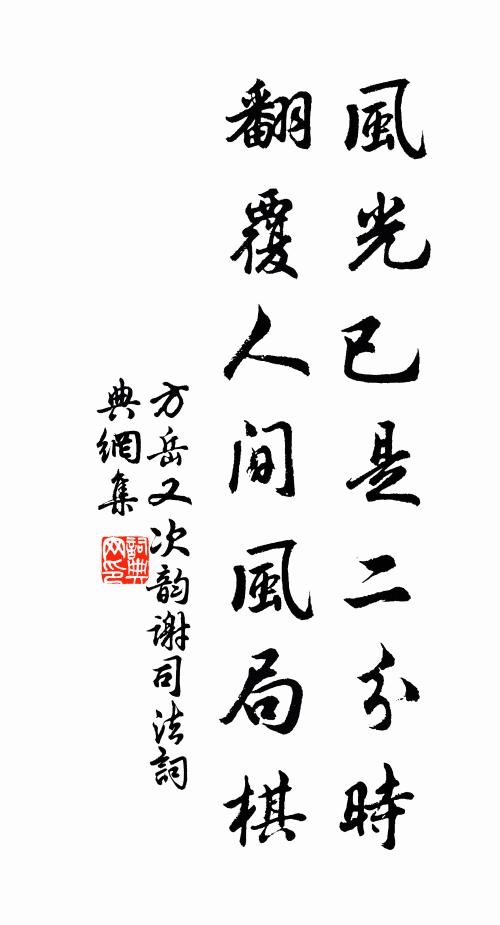 風光已是二分時
翻覆人間風局棋
方岳又次韵谢司法詞
典網集
詞典网印